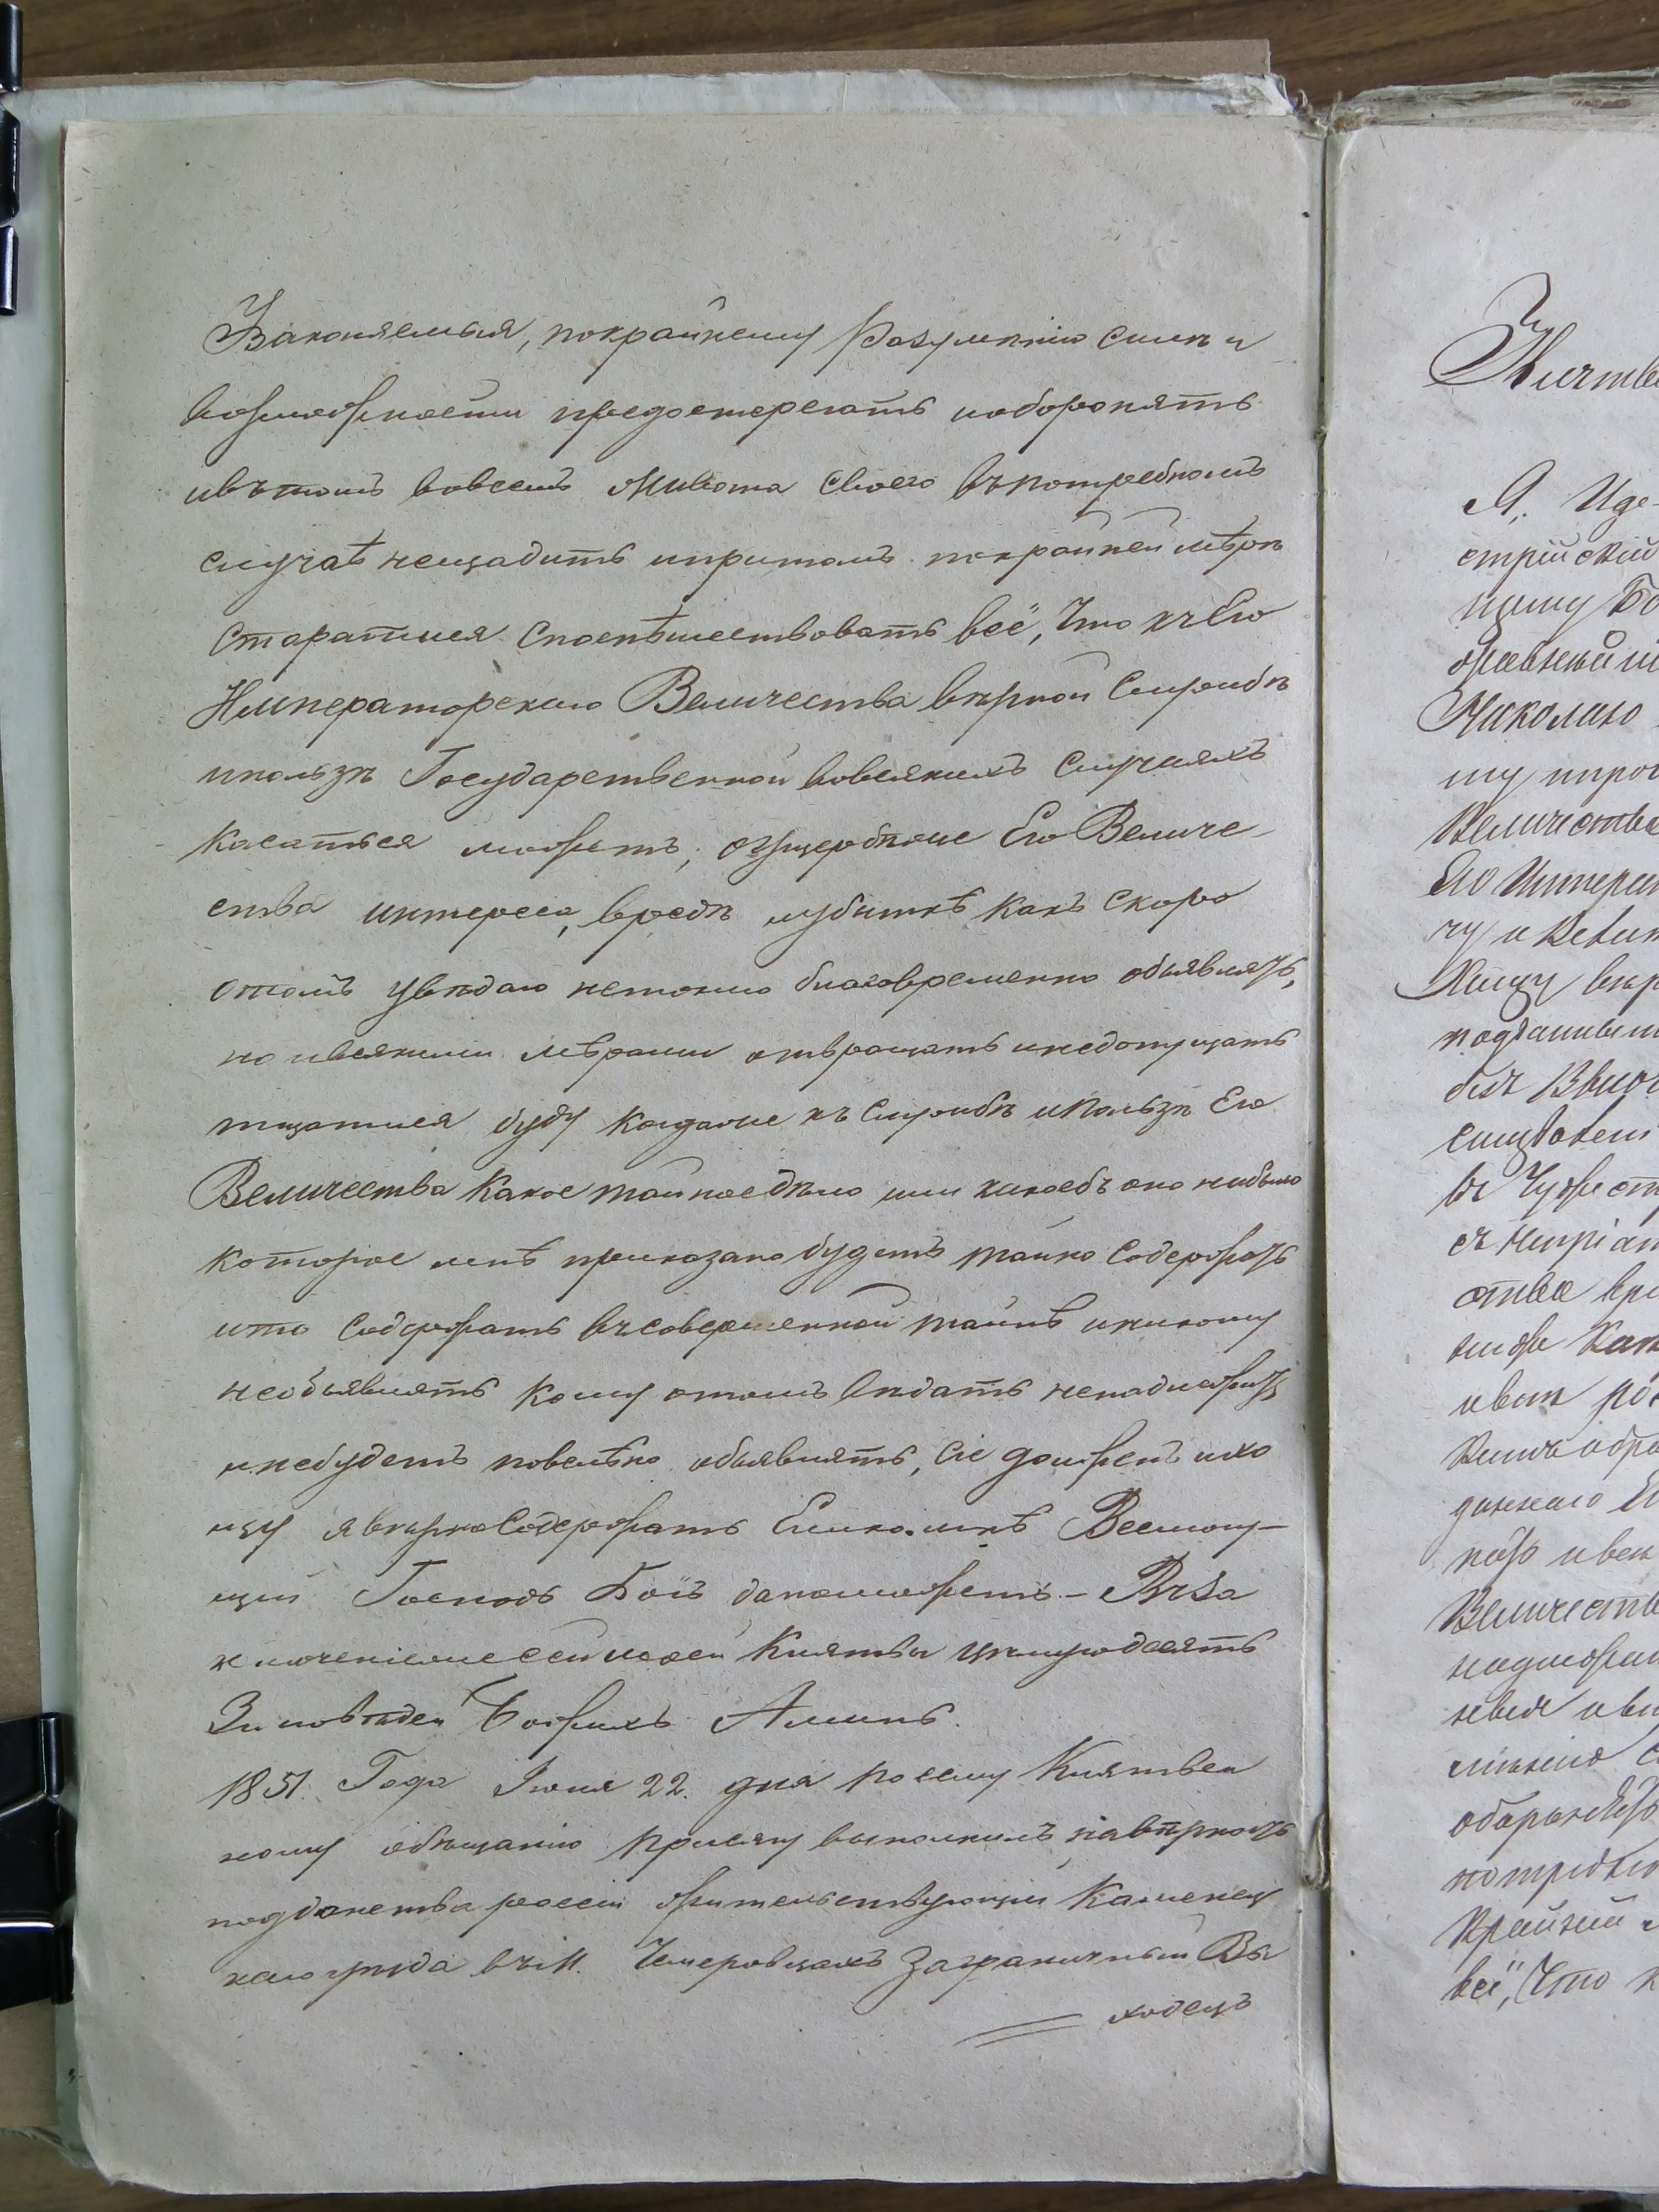 Узаконяемыя, покрайнему Разумѣнію силѣ и
возможности предостерегать иоборонять
ивътомъ вовсемъ Живота Своего въпотребномъ
случаѣ нещадить ипритомъ покрайней мѣрѣ
Старатися Споспѣшествовать всё, Что къ Его
Императорскаго Величества вѣрной Службѣ
ипользѣ Государственной вовсякихъ Случаяхъ
Касаться можетъ; обущербѣже Его Величе
ства интереса, вредѣ иубыткѣ какъ скоро
отомъ увѣдаю нетокмо благовременно объявлять,
но ивсякими мѣрами отвращать инедопущать
тщатися буду когдаже къ Службѣ иПользѣ Его
Величества Какое тайное дѣло или какоебъ оно нибыло
которое мнѣ приказано будетъ тайно Содержать
ито Содержать въсовершенной тайнѣ иникому
необъявлять Кому отомъ вѣдать ненадлежитъ
инебудетъ повелѣно объявлять, Сіе долженъ ихо
щу явѣрно Содержать Елико мнѣ Всемогу-
щій Господь Богъ даповможетъ - Въ За
ключеніежесеймоей Клятвы цѣлуюдесять
Заповѣдей Божіихъ Аминь.
1851. Года Іюня 22. дня посему Клятвен
ному обѣщанію присягу выполнилъ навѣрность
подданства россіи жительствующій Каменец
каго уѣзда въ м. Чемеровцахъ Заграничный Вы
ходецъ
Клятве
Я, Ниже
стрійскій
щему Бо
Николаю
Величества
Его Импера
Хощу вѣр
подданным
безъ Вын
въ Чуже ст
съ непріят
ства вре
ниже Как
даннаго Ег
Величеств
обороня
потребно
Крайней м
всё, Что к